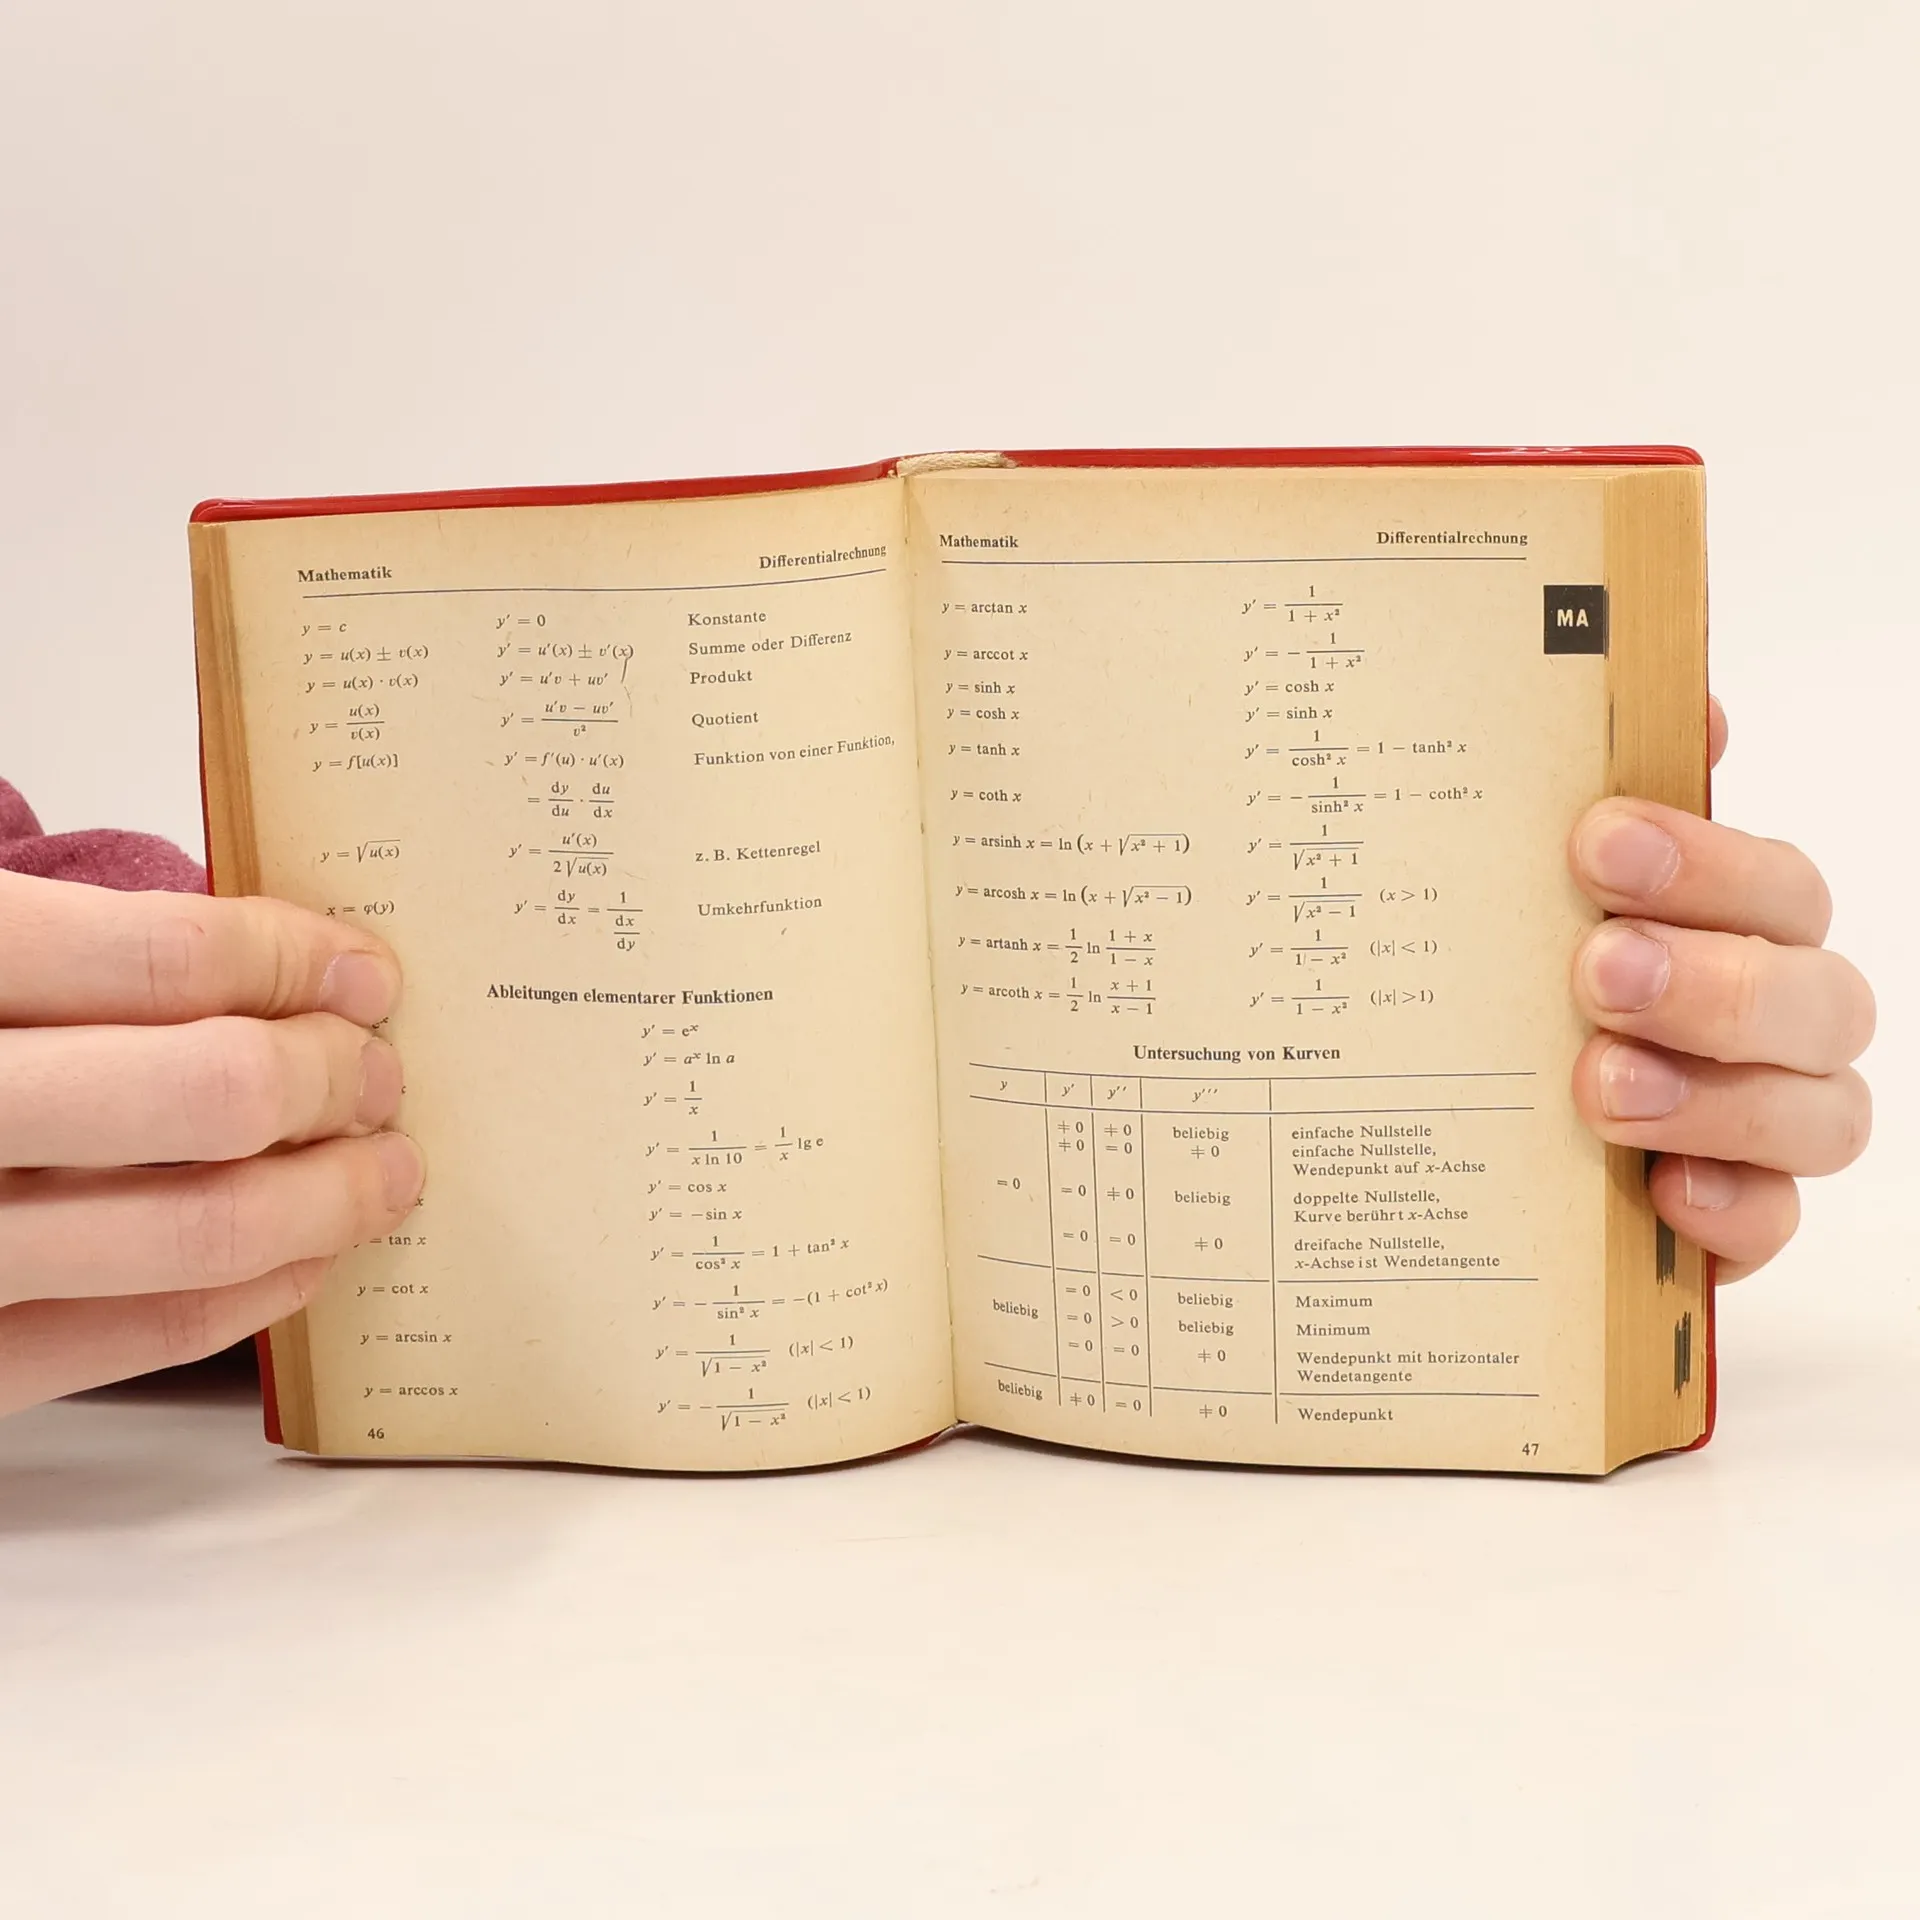 Mathematik Differentialrechnung
y = c y′ = 0 Konstante
y = u(x) ± v(x) y′ = u′(x) ± v′(x) Summe oder Differenz
y = u(x) · v(x) y′ = u′v + uv′ Produkt
y = u(x)/v(x) y′ = (u′v − uv′)/v² Quotient
y = f[u(x)] y′ = f′(u) · u′(x) Funktion von einer Funktion,
= dy/du · du/dx
y = √u(x) y′ = u′(x)/(2√u(x)) z. B. Kettenregel
x = φ(y) y′ = dy/dx = 1/(dx/dy) Umkehrfunktion
Ableitungen elementarer Funktionen
y′ = eˣ
y′ = aˣ ln a
y′ = 1/x
y′ = 1/(x ln 10) = 1/x lg e
y′ = cos x
x y′ = −sin x
= tan x y′ = 1/cos² x = 1 + tan² x
y = cot x y′ = − 1/sin² x = −(1 + cot² x)
y = arcsin x y′ = 1/√(1 − x²) (|x| < 1)
y = arccos x y′ = − 1/√(1 − x²) (|x| < 1)
46
Mathematik Differentialrechnung
MA
y = arctan x y′ = 1/(1 + x²)
y = arccot x y′ = − 1/(1 + x²)
y = sinh x y′ = cosh x
y = cosh x y′ = sinh x
y = tanh x y′ = 1/cosh² x = 1 − tanh² x
y = coth x y′ = − 1/sinh² x = 1 − coth² x
y = arsinh x = ln (x + √(x² + 1)) y′ = 1/√(x² + 1)
y = arcosh x = ln (x + √(x² − 1)) y′ = 1/√(x² − 1) (x > 1)
y = artanh x = 1/2 ln (1 + x)/(1 − x) y′ = 1/(1 − x²) (|x| < 1)
y = arcoth x = 1/2 ln (x + 1)/(x − 1) y′ = 1/(1 − x²) (|x| > 1)
Untersuchung von Kurven
y y′ y′′ y′′′
≠ 0 ≠ 0 beliebig einfache Nullstelle
≠ 0 = 0 ≠ 0 einfache Nullstelle,
Wendepunkt auf x-Achse
= 0 = 0 ≠ 0 beliebig doppelte Nullstelle,
Kurve berührt x-Achse
= 0 = 0 ≠ 0 dreifache Nullstelle,
x-Achse ist Wendetangente
beliebig = 0 < 0 beliebig Maximum
= 0 > 0 beliebig Minimum
= 0 = 0 ≠ 0 Wendepunkt mit horizontaler
Wendetangente
beliebig ≠ 0 = 0 ≠ 0 Wendepunkt
47